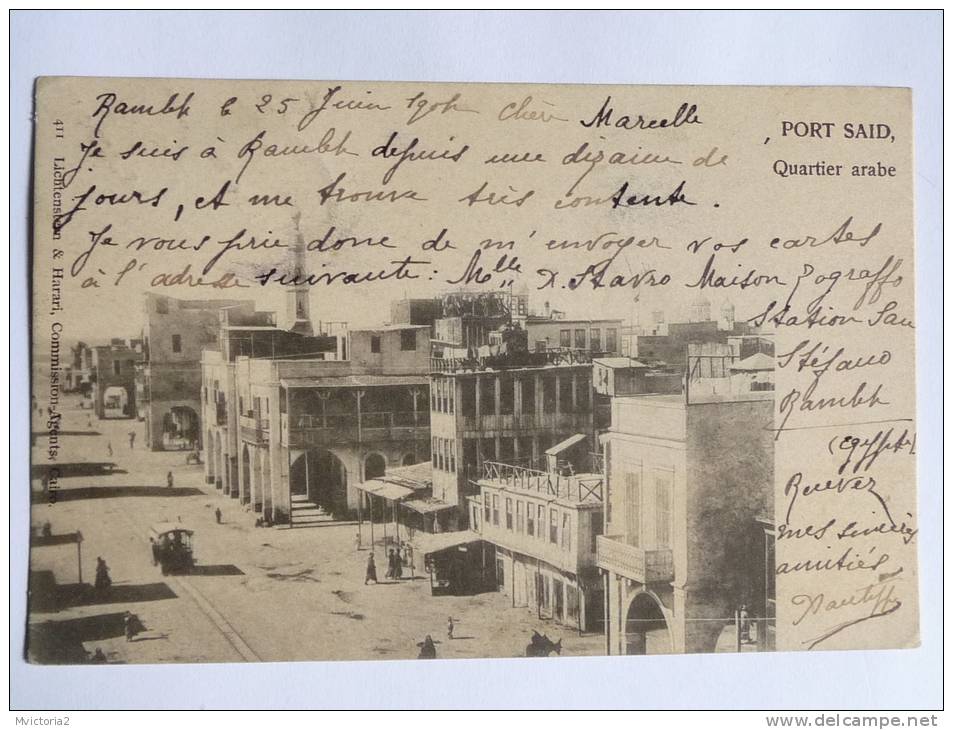 Ramleh le 25 Juin 1904 Chère Marcelle
Je suis à Ramleh depuis une dizaine de
jours, et me trouve très contente.
Je vous prie donc de m'envoyer vos cartes
à l'adresse suivante: Melle X. Stavro Maison Zograffo
Station San
Stéfano
Ramleh
(Egypte)
Recevez
mes sincères
amitiés
PORT SAID,
Quartier arabe
411 Lichtenstern & Harari, Commission-Agents, Cairo.
Mvictoria2
www.delcampe.net